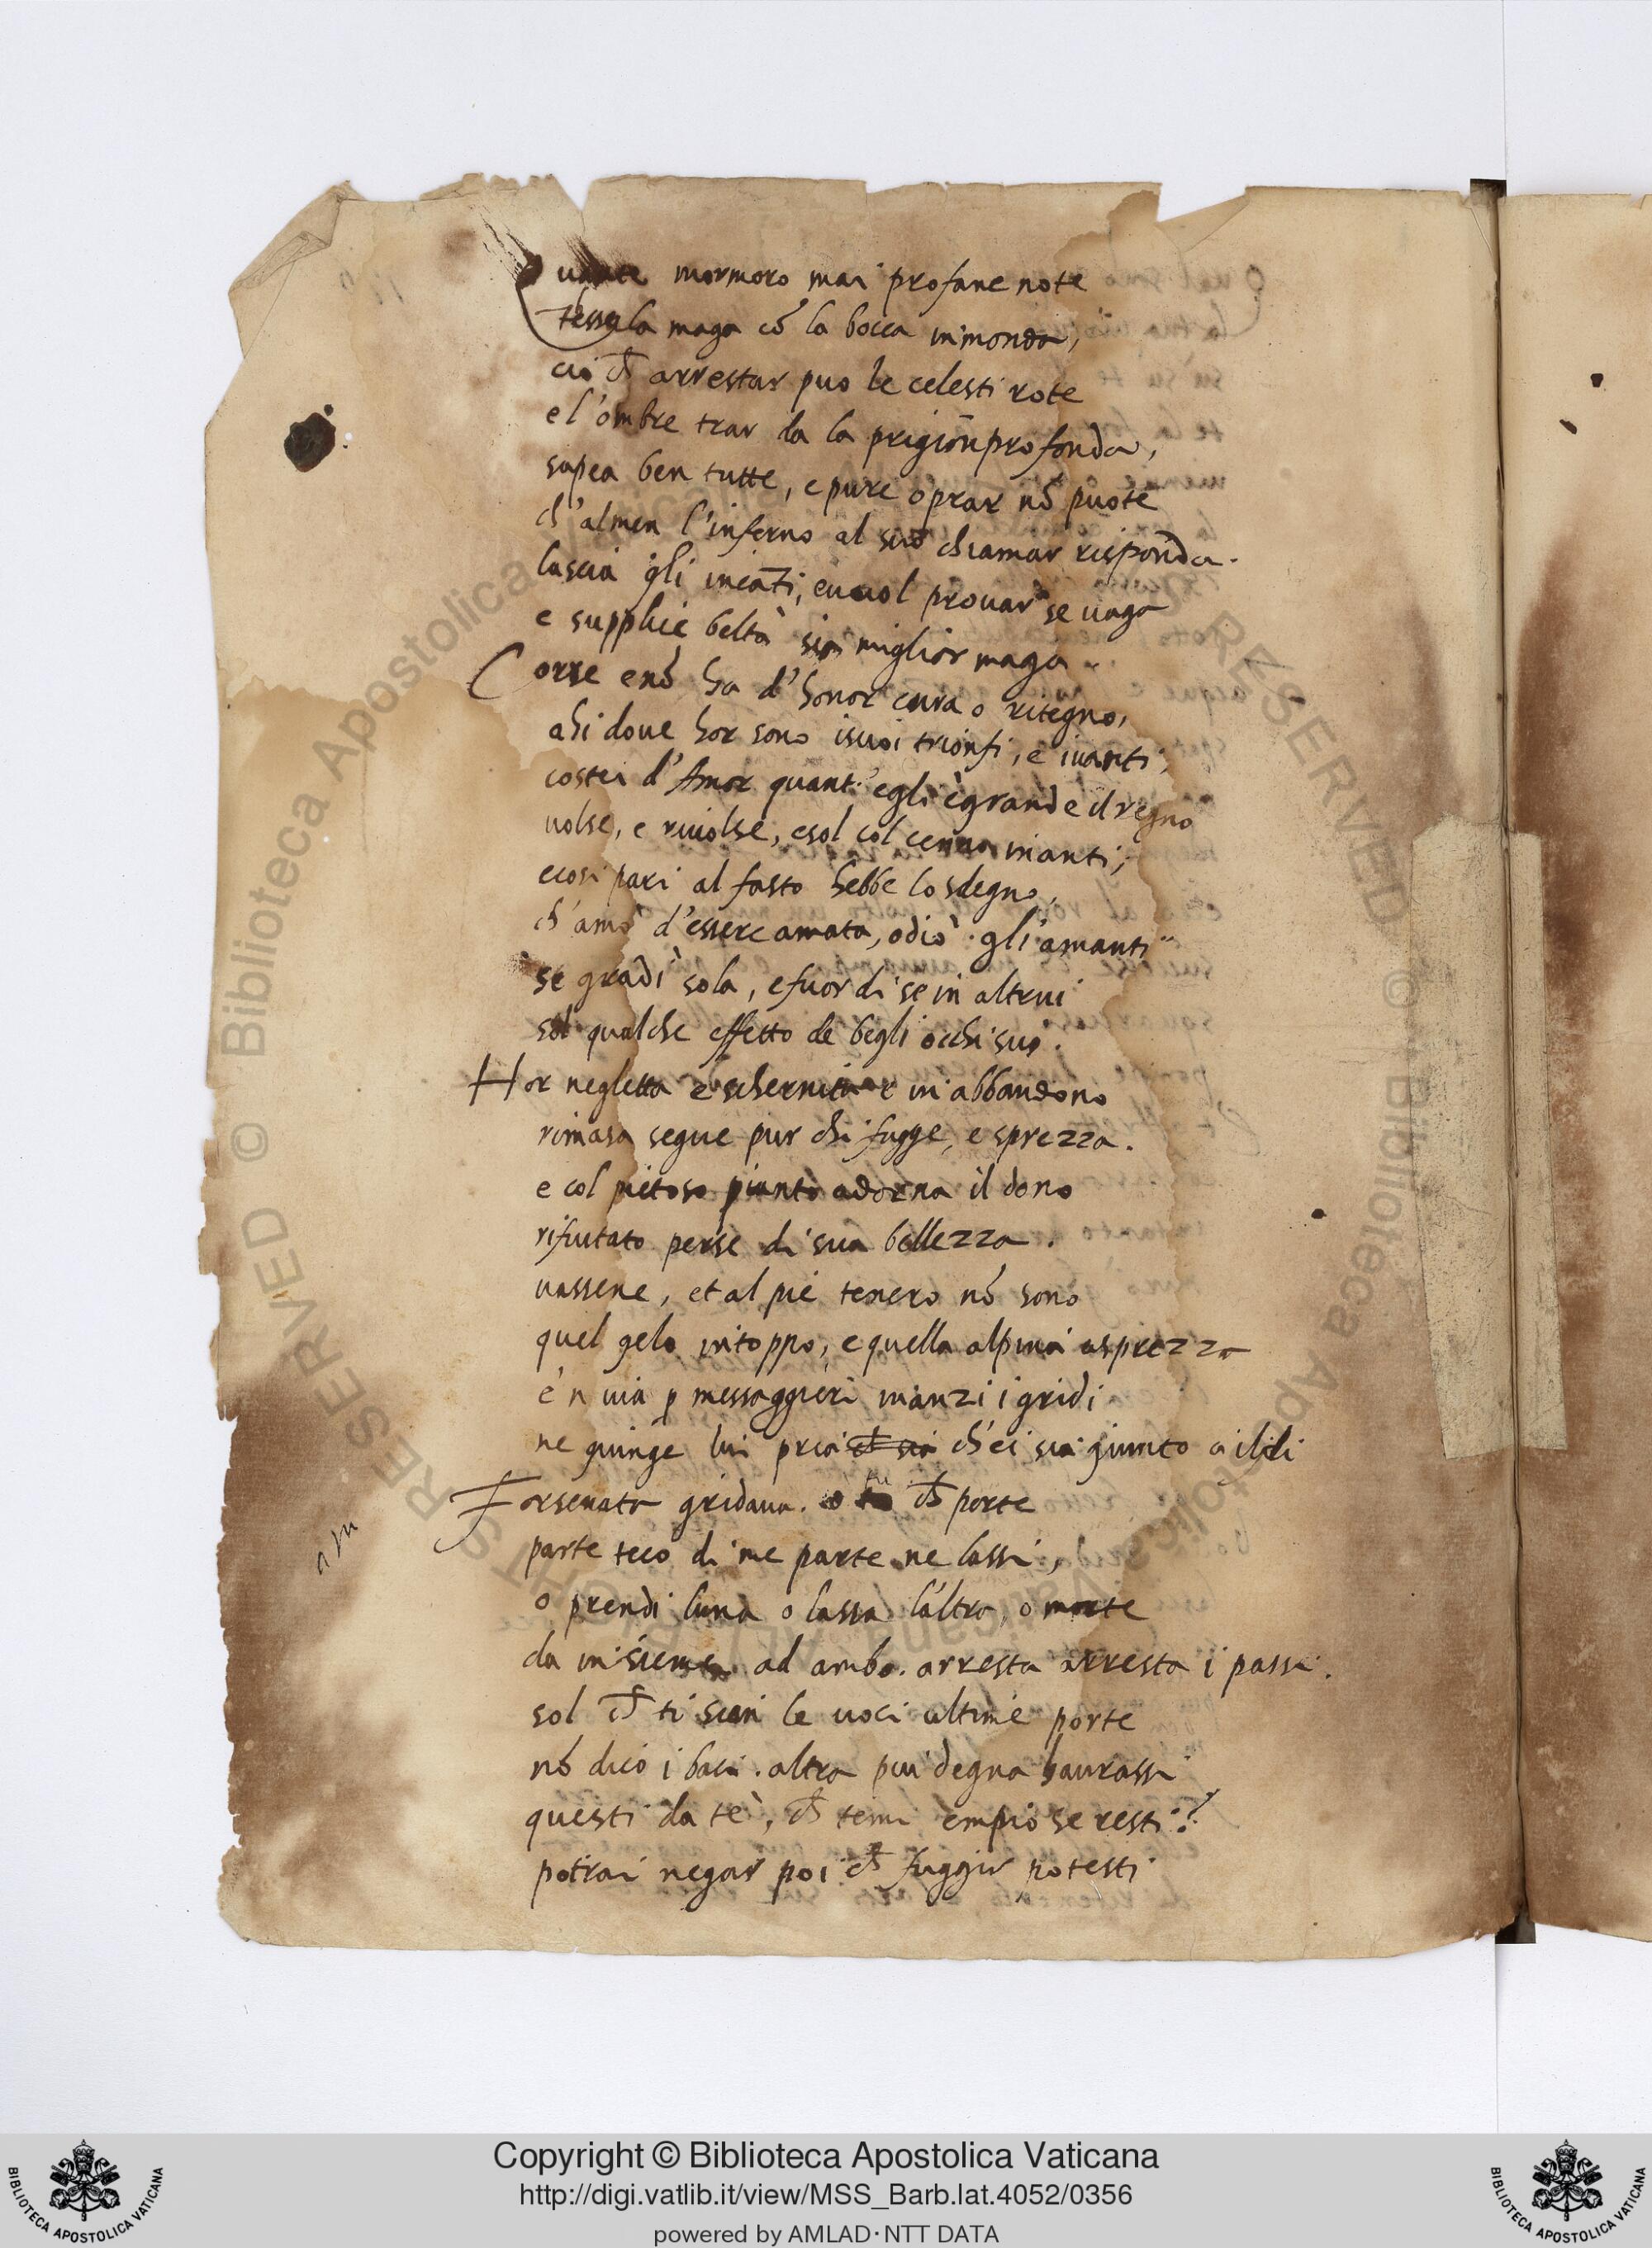 Quante mormorò mai profane note
Tessala maga cō la bocca inmonda,
ciò ch̄ arrestar può le celesti rote
e l'ombre trar da la prigion profonda,
sapea ben tutte, e pure oprar nō puote
ch'almen l'inferno al suo chiamar risponda.
lascia gli incāti, e uuol prouar se uaga
e supplice beltà sia miglior maga.
Corre e nō ha d'honor cura o ritegno,
ahi doue hor sono i suoi trionfi, e i uanti;
costei d'Amor quant'egli è grande il regno
uolse, e riuolse, e sol col cenno inanti;
e cosi pari al fasto hebbe lo sdegno,
ch'amò d'essere amata, odiò gli amanti
se gradì sola, e fuor di se in altrui
sol qualche effetto de begli occhi sui.
Hor negletta e schernita e in abbandono
rimasa segue pur chi fugge, e sprezza.
e col pietoso pianto adorna il dono
rifiutato per se di sua bellezza.
uassene, et al piè tenero nō sono
quel gelo intoppo, e quella alpina asprezza
e n uia p messaggieri inanzi i gridi
ne giunge lui pria ch'ei sia giunto a i lidi
Forsenata gridaua. o tu ch̄ porte
parte teco di me parte ne lassi,
o prendi l'una o lassa l'altra, o morte
da insieme ad ambo. arresta arresta i passi.
sol ch̄ ti sian le uoci ultime porte
nō dico i baci. altra più degna haurassi
questi da te, ch̄ temi empio se resti?
potrai negar poi ch̄ fuggir potesti
RESERVED © Biblioteca Apostolica Vaticana
Copyright © Biblioteca Apostolica Vaticana
http://digi.vatlib.it/view/MSS_Barb.lat.4052/0356
powered by AMLAD·NTT DATA
BIBLIOTECA APOSTOLICA VATICANA
BIBLIOTECA APOSTOLICA VATICANA